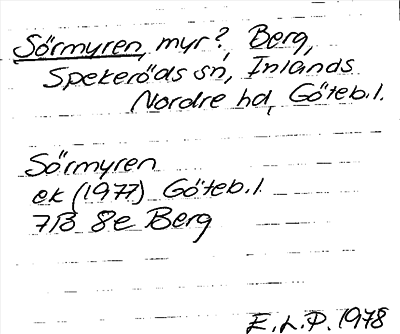 Sörmyren, myr?, Berg,
Spekeröds sn, Inlands
Nordre hd, Göteb.l.
Sörmyren
ek (1977) Göteb.l.
7B 8e Berg
E.L.P. 1978